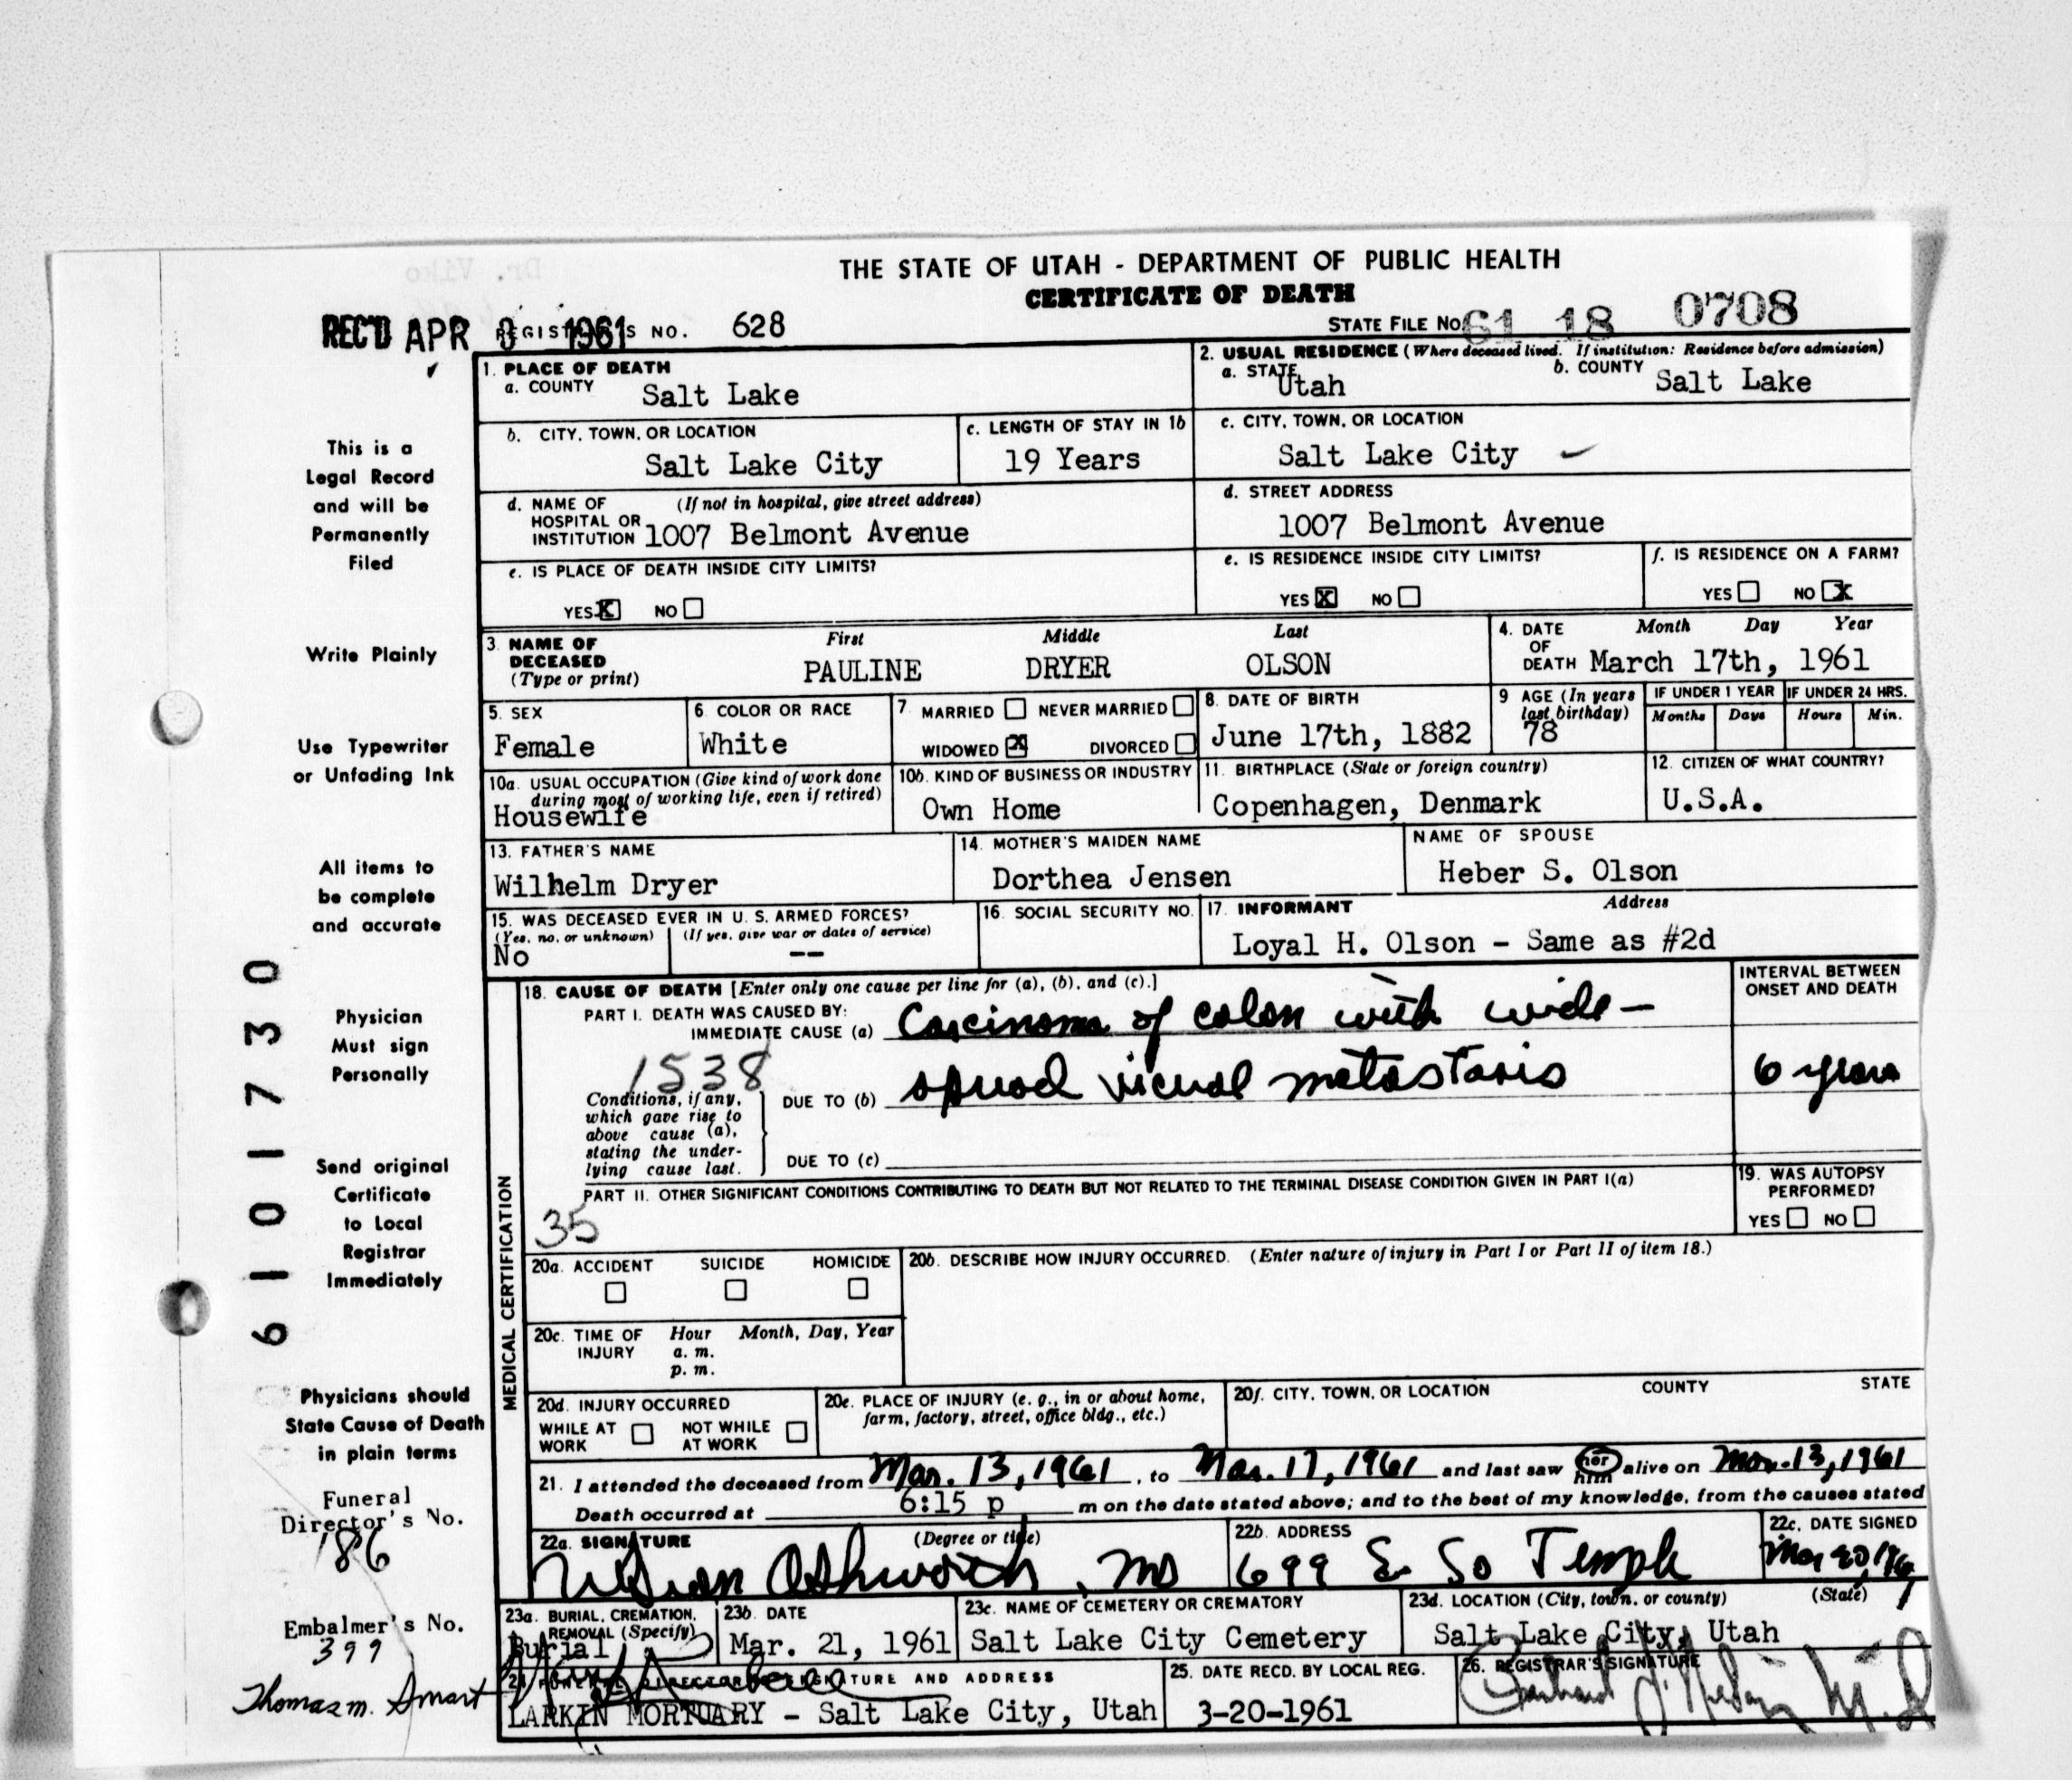 THE STATE OF UTAH - DEPARTMENT OF PUBLIC HEALTH
CERTIFICATE OF DEATH
REC'D APR 3 1961 REGISTRAR'S NO. 628 STATE FILE NO. 61 18 0708
1. PLACE OF DEATH
a. COUNTY Salt Lake
2. USUAL RESIDENCE (Where deceased lived. If institution: Residence before admission)
a. STATE Utah b. COUNTY Salt Lake
b. CITY, TOWN, OR LOCATION Salt Lake City
c. LENGTH OF STAY IN 1b 19 Years
c. CITY, TOWN, OR LOCATION Salt Lake City
d. NAME OF HOSPITAL OR INSTITUTION (If not in hospital, give street address) 1007 Belmont Avenue
d. STREET ADDRESS 1007 Belmont Avenue
e. IS PLACE OF DEATH INSIDE CITY LIMITS?
YES X NO
e. IS RESIDENCE INSIDE CITY LIMITS?
YES X NO
f. IS RESIDENCE ON A FARM?
YES NO X
3. NAME OF DECEASED (Type or print) First PAULINE Middle DRYER Last OLSON
4. DATE OF DEATH Month Day Year March 17th, 1961
5. SEX Female
6. COLOR OR RACE White
7. MARRIED NEVER MARRIED
WIDOWED X DIVORCED
8. DATE OF BIRTH June 17th, 1882
9 AGE (In years last birthday) 78
IF UNDER 1 YEAR Months Days
IF UNDER 24 HRS. Hours Min.
10a. USUAL OCCUPATION (Give kind of work done during most of working life, even if retired) Housewife
10b. KIND OF BUSINESS OR INDUSTRY Own Home
11. BIRTHPLACE (State or foreign country) Copenhagen, Denmark
12. CITIZEN OF WHAT COUNTRY? U.S.A.
13. FATHER'S NAME Wilhelm Dryer
14. MOTHER'S MAIDEN NAME Dorthea Jensen
NAME OF SPOUSE Heber S. Olson
15. WAS DECEASED EVER IN U. S. ARMED FORCES?
(Yes, no, or unknown) No (If yes, give war or dates of service) --
16. SOCIAL SECURITY NO.
17. INFORMANT Address
Loyal H. Olson - Same as #2d
MEDICAL CERTIFICATION
18. CAUSE OF DEATH [Enter only one cause per line for (a), (b), and (c).]
INTERVAL BETWEEN ONSET AND DEATH
PART I. DEATH WAS CAUSED BY:
IMMEDIATE CAUSE (a) Carcinoma of colon with wide-
1538
Conditions, if any, which gave rise to above cause (a), stating the underlying cause last.
DUE TO (b) spread visceral metastasis 6 years
DUE TO (c)
PART II. OTHER SIGNIFICANT CONDITIONS CONTRIBUTING TO DEATH BUT NOT RELATED TO THE TERMINAL DISEASE CONDITION GIVEN IN PART I(a)
35
19. WAS AUTOPSY PERFORMED?
YES NO
20a. ACCIDENT SUICIDE HOMICIDE
20b. DESCRIBE HOW INJURY OCCURRED. (Enter nature of injury in Part I or Part II of item 18.)
20c. TIME OF INJURY Hour Month, Day, Year
a. m.
p. m.
20d. INJURY OCCURRED
WHILE AT WORK NOT WHILE AT WORK
20e. PLACE OF INJURY (e. g., in or about home, farm, factory, street, office bldg., etc.)
20f. CITY, TOWN, OR LOCATION COUNTY STATE
21. I attended the deceased from Mar. 13, 1961, to Mar. 17, 1961 and last saw her him alive on Mar. 13, 1961
Death occurred at 6:15 p m on the date stated above; and to the best of my knowledge, from the causes stated
22a. SIGNATURE (Degree or title)
Ashworth, MD
22b. ADDRESS 699 E So Temple
22c. DATE SIGNED Mar 20, 1961
23a. BURIAL, CREMATION, REMOVAL (Specify) Burial
23b. DATE Mar. 21, 1961
23c. NAME OF CEMETERY OR CREMATORY Salt Lake City Cemetery
23d. LOCATION (City, town, or county) (State)
Salt Lake City, Utah
24. FUNERAL DIRECTOR'S SIGNATURE AND ADDRESS
LARKIN MORTUARY - Salt Lake City, Utah
25. DATE RECD. BY LOCAL REG. 3-20-1961
26. REGISTRAR'S SIGNATURE
This is a
Legal Record
and will be
Permanently
Filed
Write Plainly
Use Typewriter
or Unfading Ink
All items to
be complete
and accurate
Physician
Must sign
Personally
Send original
Certificate
to Local
Registrar
Immediately
Physicians should
State Cause of Death
in plain terms
Funeral
Director's No.
186
Embalmer's No.
399
Thomas M. Smart
6101730
Dr. Viko